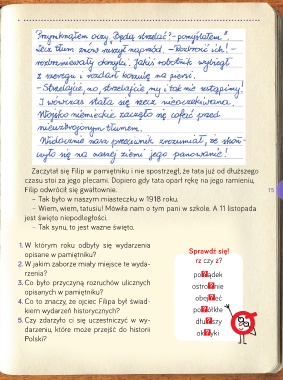 Przymknąłem oczy. „Będą strzelać? – pomyślałem."
Lecz tłum znów ruszył naprzód. – Rozbroić ich! –
rozbrzmiewały okrzyki. Jakiś robotnik wybiegł
z szeregu i rozdarł koszulę na piersi.
– Strzelajcie, no, strzelajcie, my i tak nie ustąpimy!
I wówczas stała się rzecz nieoczekiwana.
Wojsko niemieckie zaczęło się cofać przed
nieuzbrojonym tłumem.
Widocznie nasz przeciwnik zrozumiał, że skoń-
czyło się na naszej ziemi jego panowanie!
Zaczytał się Filip w pamiętniku i nie spostrzegł, że tata już od dłuższego
czasu stoi za jego plecami. Dopiero gdy tata oparł rękę na jego ramieniu,
Filip odwrócił się gwałtownie.
– Tak było w naszym miasteczku w 1918 roku.
– Wiem, wiem, tatusiu! Mówiła nam o tym pani w szkole. A 11 listopada
jest święto niepodległości.
– Tak synu, to jest ważne święto.
15
1. W którym roku odbyły się wydarzenia
opisane w pamiętniku?
2. W jakim zaborze miały miejsce te wyda-
rzenia?
3. Co było przyczyną rozruchów ulicznych
opisanych w pamiętniku?
4. Co to znaczy, że ojciec Filipa był świad-
kiem wydarzeń historycznych?
5. Czy zdarzyło ci się uczestniczyć w wy-
darzeniu, które może przejść do historii
Polski?
Sprawdź się!
rz czy ż?
po?ądek
ostro?nie
obej?eć
po?ółkłe
dłu?szy
ok?yki